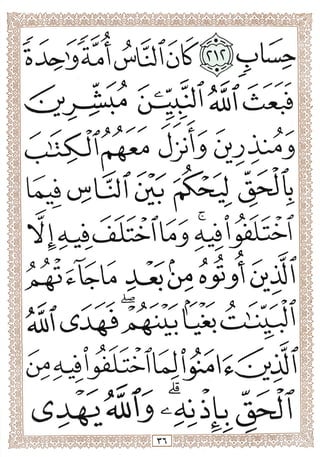 حِسَابٍ ﴿٢١٢﴾ كَانَ ٱلنَّاسُ أُمَّةً وَٰحِدَةً
فَبَعَثَ ٱللَّهُ ٱلنَّبِيِّـۧنَ مُبَشِّرِينَ
وَمُنذِرِينَ وَأَنزَلَ مَعَهُمُ ٱلْكِتَٰبَ
بِٱلْحَقِّ لِيَحْكُمَ بَيْنَ ٱلنَّاسِ فِيمَا
ٱخْتَلَفُوا۟ فِيهِ ۚ وَمَا ٱخْتَلَفَ فِيهِ إِلَّا
ٱلَّذِينَ أُوتُوهُ مِنۢ بَعْدِ مَا جَآءَتْهُمُ
ٱلْبَيِّنَٰتُ بَغْيًۢا بَيْنَهُمْ ۖ فَهَدَى ٱللَّهُ
ٱلَّذِينَ ءَامَنُوا۟ لِمَا ٱخْتَلَفُوا۟ فِيهِ مِنَ
ٱلْحَقِّ بِإِذْنِهِۦ ۗ وَٱللَّهُ يَهْدِى
٣٦